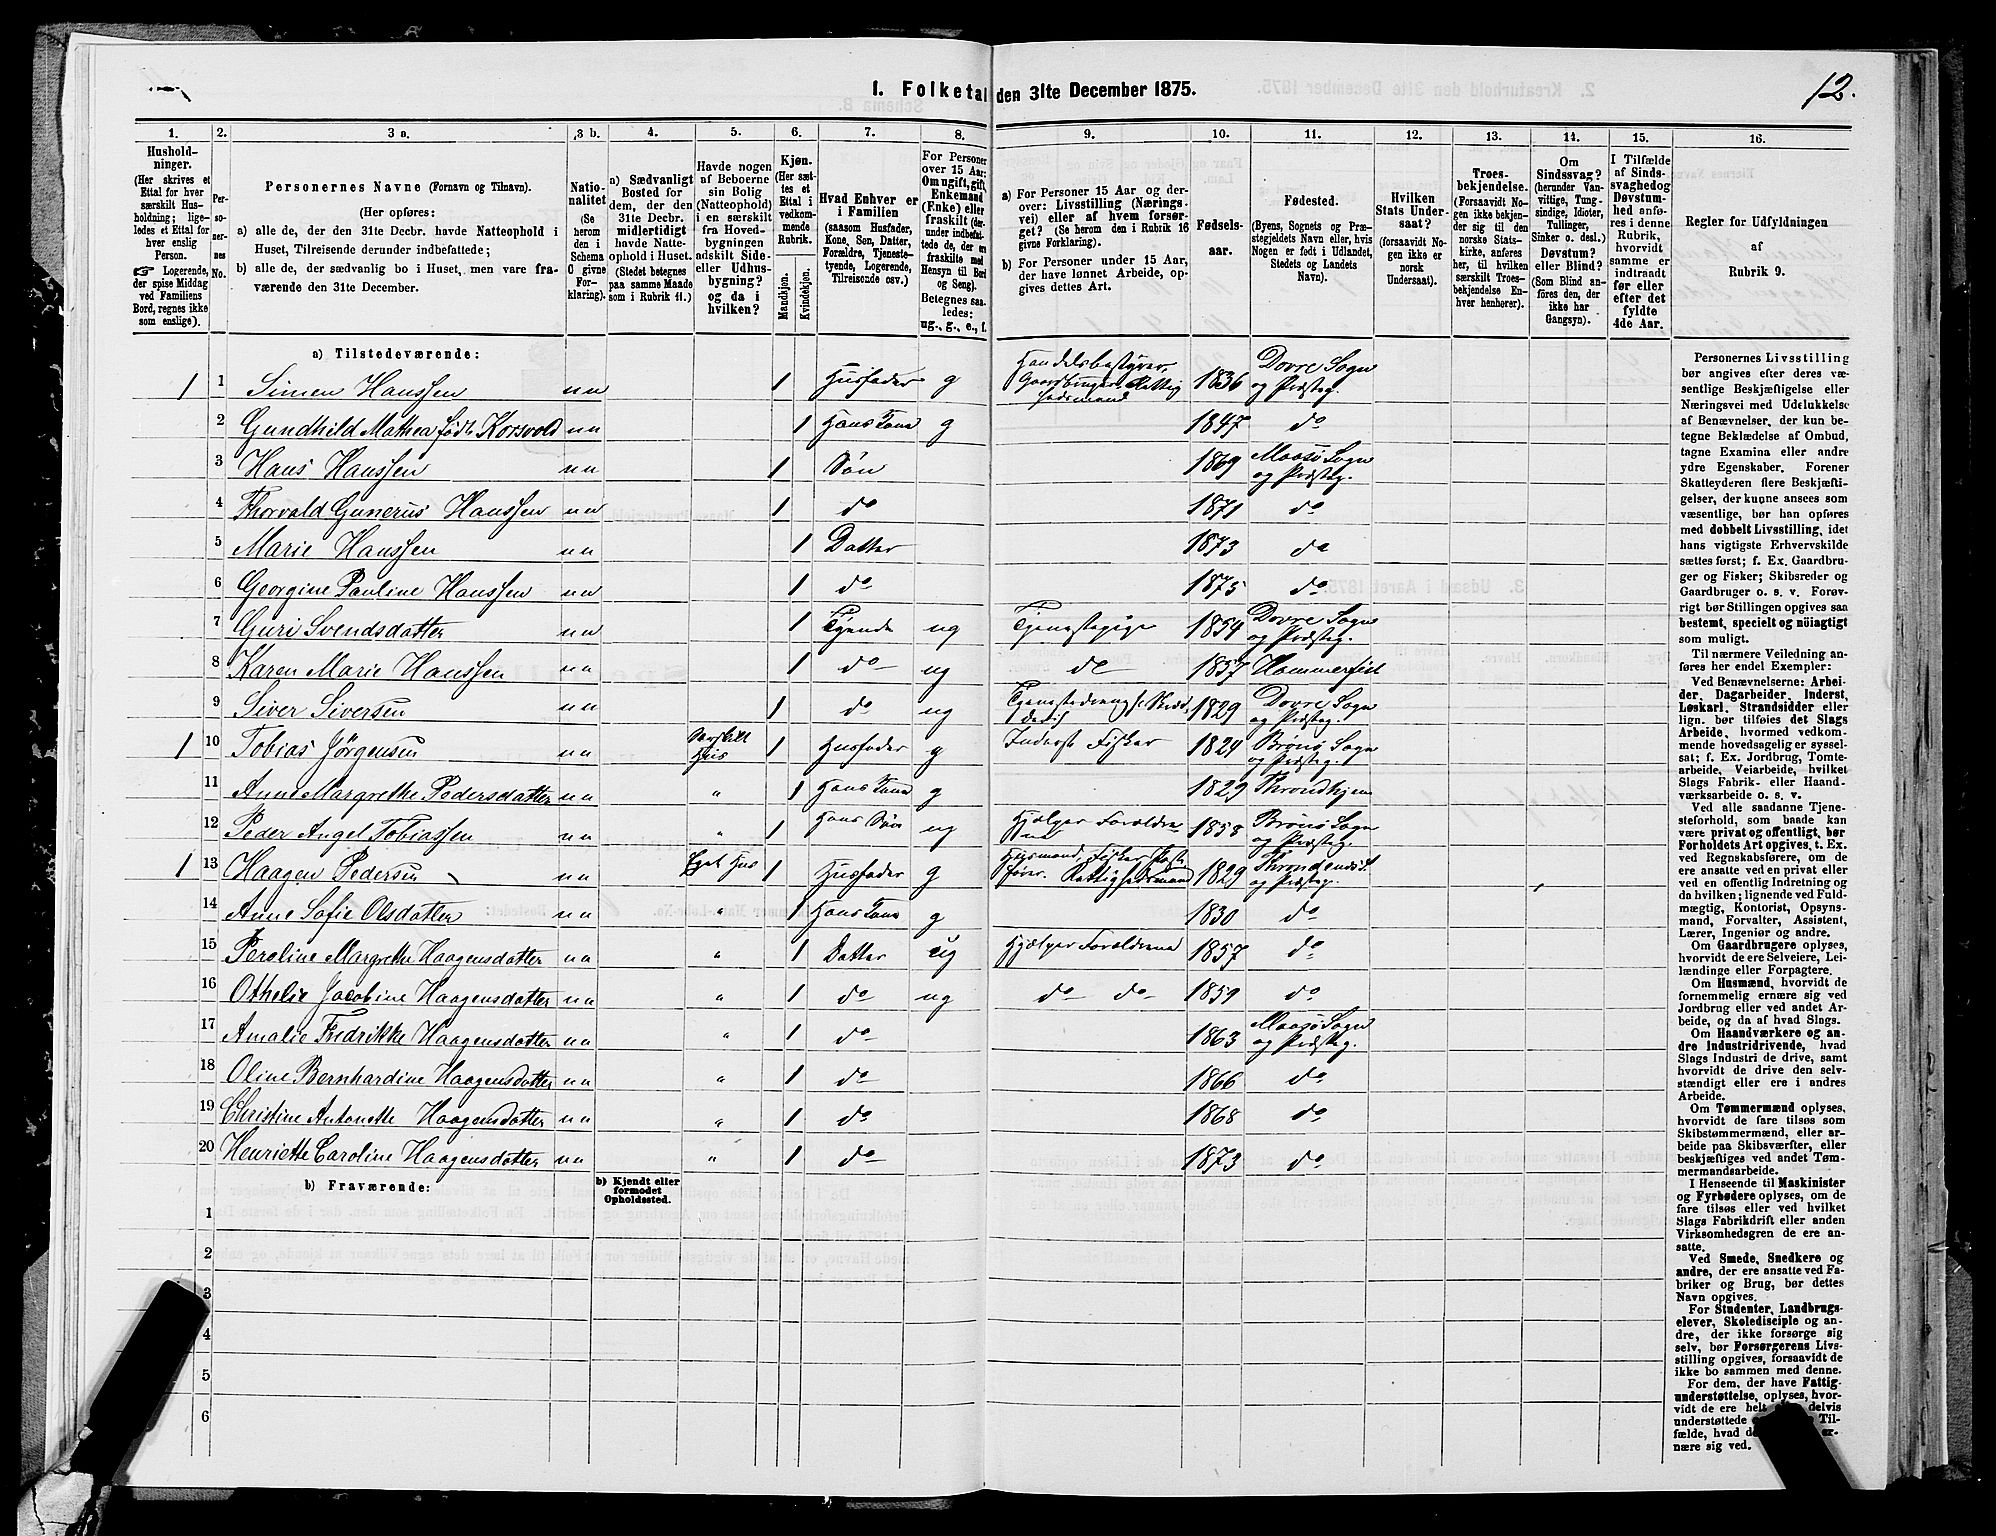 1. Folketal den 31te December 1875.
12.
1.
2.
3 a.
3 b.
4.
5.
6.
7.
8.
9.
10.
11.
12.
13.
14.
15.
16.
Husholdninger.
(Her skrives et
Ettal for hver
særskilt Husholdning;
ligeledes et Ettal for
hver enslig
Person.
☞ Logerende,
der spise Middag
ved Familiens
Bord, regnes ikke
som enslige).
Personernes
No.
Personernes Navne (Fornavn og Tilnavn).
(Her opføres:
a) alle de, der den 31te Decbr. havde Natteophold i
Huset, Tilreisende derunder indbefattede;
b) alle de, der sædvanlig bo i Huset, men vare fraværende
den 31te December.
Nationalitet
(Se
herom
den i
Schema
C givne
Forklaring).
a) Sædvanligt
Bosted for
dem, der den
31te Decbr.
midlertidigt
havde Natteophold
i Huset.
(Stedet betegnes
paa samme Maade
som i Rubrik 11.)
Havde nogen
af Beboerne
sin Bolig
(Natteophold)
i en særskilt
fra Hovedbygningen
adskilt Side-
eller Udhusbygning?
og da i
hvilken?
Kjøn.
(Her sættes
et
Ettal i
vedkommende
Rubrik.
Mandkjøn.
Kvindekjøn.
Hvad Enhver er
i Familien
(saasom Husfader,
Kone, Søn, Datter,
Forældre, Tjenestetyende,
Logerende,
Tilreisende osv.)
For Personer
over 15 Aar:
Om ugift, gift,
Enkemand
(Enke) eller
fraskilt (derunder
indbefattede
de, der ere
fraskilte med
Hensyn til Bord
og Seng).
Betegnes saaledes:
ug., g., e., f.
a) For Personer 15 Aar og derover:
Livsstilling (Næringsvei)
eller af hvem forsørget?
(Se herom den i Rubrik 16
givne Forklaring).
b) For Personer under 15 Aar,
der have lønnet Arbeide, opgives
dettes Art.
Fødselsaar.
Fødested.
(Byens, Sognets og Præstegjeldets
Navn eller, hvis
Nogen er født i Udlandet,
Stedets og Landets
Navn).
Hvilken
Stats Undersaat?
(forsaavidt Nogen
ikke er
norsk
Undersaat).
Troesbekjendelse.
(Forsaavidt Nogen
ikke bekjender
sig til den
norske Statskirke,
anføres
her, til hvilken
særskilt Troesbekjendelse
Enhver
henhører).
Om
Sindssvag?
(herunder Vanvittige,
Tungsindige,
Idioter,
Tullinger,
Sinker o. desl.)
Døvstum?
eller Blind?
(Som Blind anføres
den, der
ikke har
Gangsyn).
I Tilfælde
af Sindssvaghed
og
Døvstumhed
anføres
i denne
Rubrik,
hvorvidt
samme er
indtraadt
før eller
efter det
fyldte
4de Aar.
Regler for Udfyldningen
af
Rubrik 9.
a) Tilstedeværende:
1 1 Simen Hanssen nn 1 Husfader g Handelsbestyrer, Gaardbruger 1836 Dovre Sogn og Præsteg.
2 Gundhild Mathea født Korsvold nn 1 Hans Kone g 1847 do
3 Hans Hanssen nn 1 Søn 1869 Maasø Sogn og Præsteg.
4 Thorvald Gunerius Hanssen nn 1 do 1871 do
5 Marie Hanssen nn 1 Datter 1873 do
6 Georgine Pauline Hanssen nn 1 do 1875 do
7 Guri Svendsdatter nn 1 Tjende ug Tjenestepige 1854 Dovre Sogn og Præsteg.
8 Karen Marie Hanssen nn 1 do ug do 1857 Hammerfest
9 Siver Siversen nn 1 do ug 1829 Dovre Sogn og Præsteg.
1 10 Tobias Jørgensen nn Særskilt Huus 1 Husfader g Inderst Fisker 1824 Brønø Sogn og Præsteg.
11 Anne Margrethe Pedersdatter nn „ 1 Hans Kone g 1829 Throndhjem
12 Peder Angel Tobiassen nn „ 1 Hans Søn ug Hjælper Forældrene 1858 Brønø Sogn og Præsteg.
1 13 Haagen Pedersen nn Eget Hus 1 Husfader g Husmand, Fisker, 1829 Throndenæs S. og Præsteg.
14 Anne Sofie Olsdatter nn „ 1 Hans Kone g 1830 do
15 Peroline Margrethe Haagensdatter nn „ 1 Datter ug Hjælper Forældrene 1857 do
16 Othelie Jacobine Haagensdatter nn „ 1 do ug do do 1859 do
17 Amalie Fredrikke Haagensdatter nn „ 1 do 1863 Maasø Sogn og Præsteg.
18 Oline Bernhardine Haagensdatter nn „ 1 do 1866 do
19 Christine Antonette Haagensdatter nn „ 1 do 1868 do
20 Henriette Caroline Haagensdatter nn „ 1 do 1873 do
b) Fraværende:
b) Kjendt eller
formodet
Opholdssted.
1
2
3
4
5
6
Personernes Livsstilling
bør angives efter deres væsentlige
Beskjæftigelse eller
Næringsvei med Udelukkelse
af Benævnelser, der kun betegne
Beklædelse af Ombud,
tagne Examina eller andre
ydre Egenskaber. Forener
Skatteyderen flere Beskjæftigelser,
der kunne ansees som
væsentlige, bør han opføres
med dobbelt Livsstilling, idet
hans vigtigste Erhvervskilde
sættes først; f. Ex. Gaardbruger
og Fisker; Skibsreder og
Gaardbruger o. s. v. Forøvrigt
bør Stillingen opgives saa
bestemt, specielt og nöiagtigt
som muligt.
Til nærmere Veiledning anføres
her endel Exempler:
Ved Benævnelserne: Arbeider,
Dagarbeider, Inderst,
Løskarl, Strandsidder eller
lign. bør tilføies det Slags
Arbeide, hvormed vedkommende
hovedsagelig er sysselsat;
f. Ex. Jordbrug, Tomtearbeide,
Veiarbeide, hvilket
Slags Fabrik- eller Haandværksarbeide
o. s. v.
Ved alle saadanne Tjenesteforhold,
som baade kan
være privat og offentligt, bør
Forholdets Art opgives, t. Ex.
ved Regnskabsførere, om de
ere ansatte ved en privat eller
ved en offentlig Indretning og
da hvilken; lignende ved Fuldmægtig,
Kontorist, Opsynsmand,
Forvalter, Assistent,
Lærer, Ingeniør og andre.
Om Gaardbrugere oplyses,
hvorvidt de ere Selveiere, Leilændinge
eller Forpagtere.
Om Husmænd, hvorvidt de
fornemmelig ernære sig ved
Jordbrug eller ved andet Arbeide,
og da af hvad Slags.
Om Haandværkere og andre
Industridrivende, hvad
Slags Industri de drive, samt
hvorvidt de drive den selvstændigt
eller ere i andres
Arbeide.
Om Tømmermænd oplyses,
hvorvidt de fare tilsøs som
Skibstømmermænd, eller arbeide
paa Skibsværfter, eller
beskjæftiges ved andet Tømmermandsarbeide.
I Henseende til Maskinister
og Fyrbødere oplyses, om de
fare tilsøs eller ved hvilket
Slags Fabrikdrift eller anden
Virksomhedsgren de ere ansatte.
Ved Smede, Snedkere og
andre, der ere ansatte ved Fabriker
og Brug, bør dettes
Navn opgives.
For Studenter, Landbrugselever,
Skoledisciple og andre,
der ikke forsørge sig
selv, bør Forsørgerens Livsstilling
opgives, forsaavidt de
ikke bo sammen med denne.
For dem, der have Fattigunderstøttelse,
oplyses, hvorvidt
de ere helt delvis
understøttede Tilfælde,
hvad de ernære
sig ved.